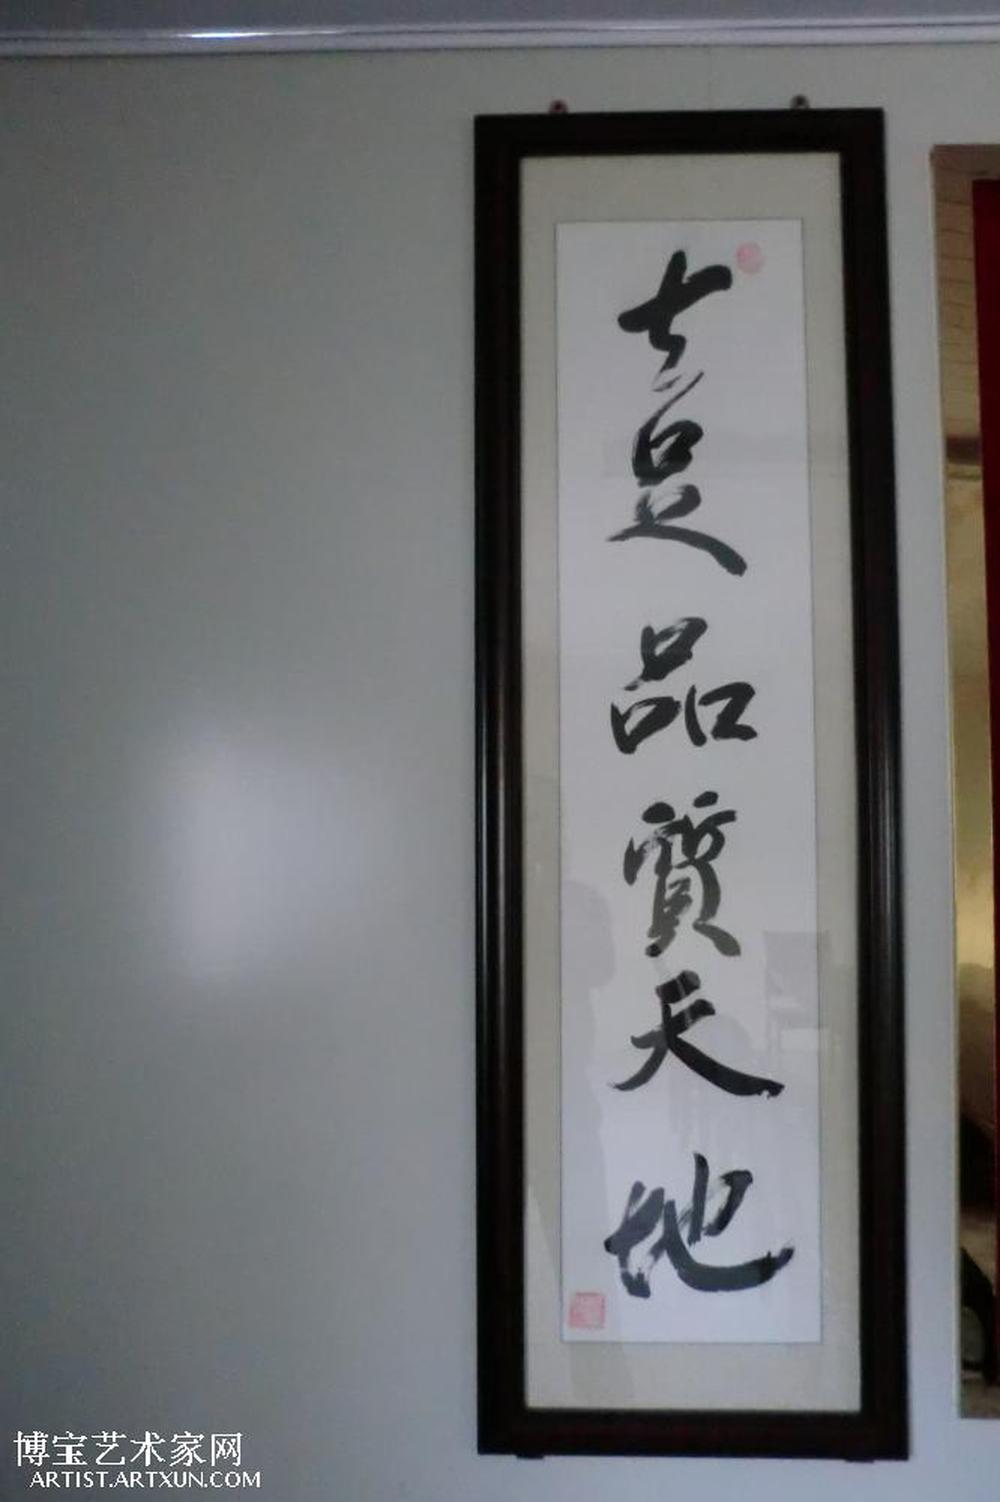 士足品質天地
博宝艺术家网
ARTIST.ARTXUN.COM